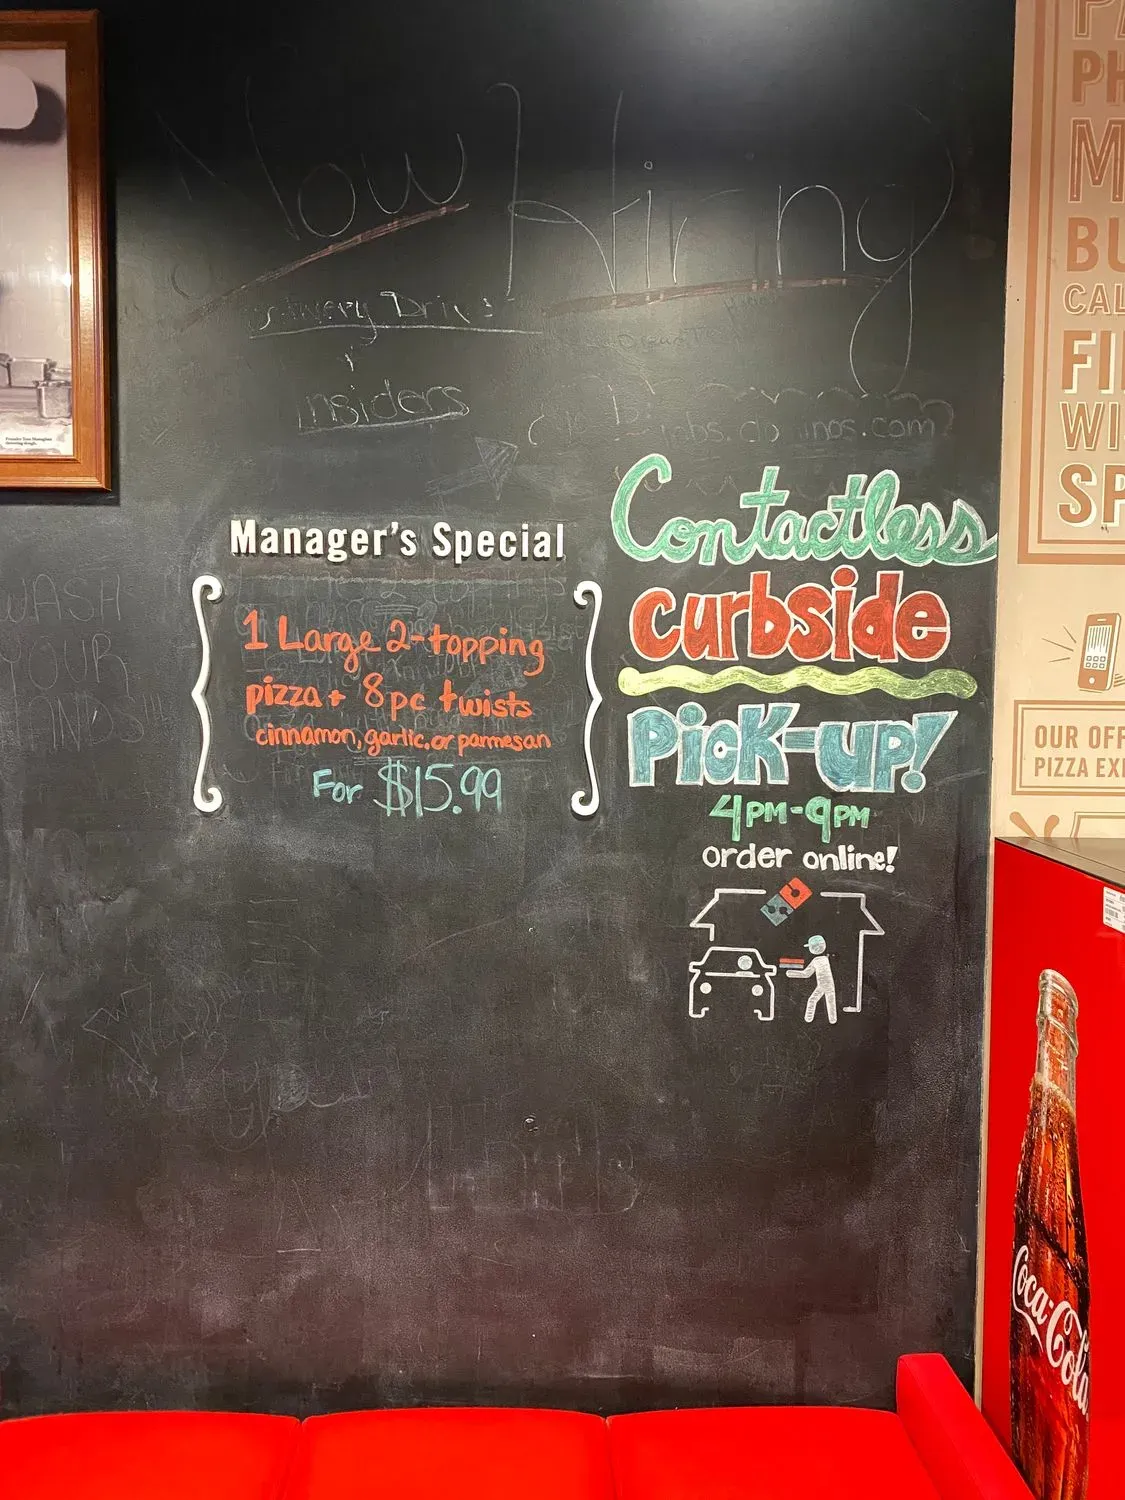 Now Hiring
Delivery Drive
insiders
jobs.dominos.com
Manager's Special
1 Large 2-topping
pizza + 8pc twists
cinnamon, garlic, or parmesan
For $15.99
Contactless
curbside
Pick-up!
4PM-9PM
order online!
WASH
YOUR
HANDS!!!
PH
M
BU
CAL
FI
WI
SP
OUR OFF
PIZZA EX
Coca-Cola